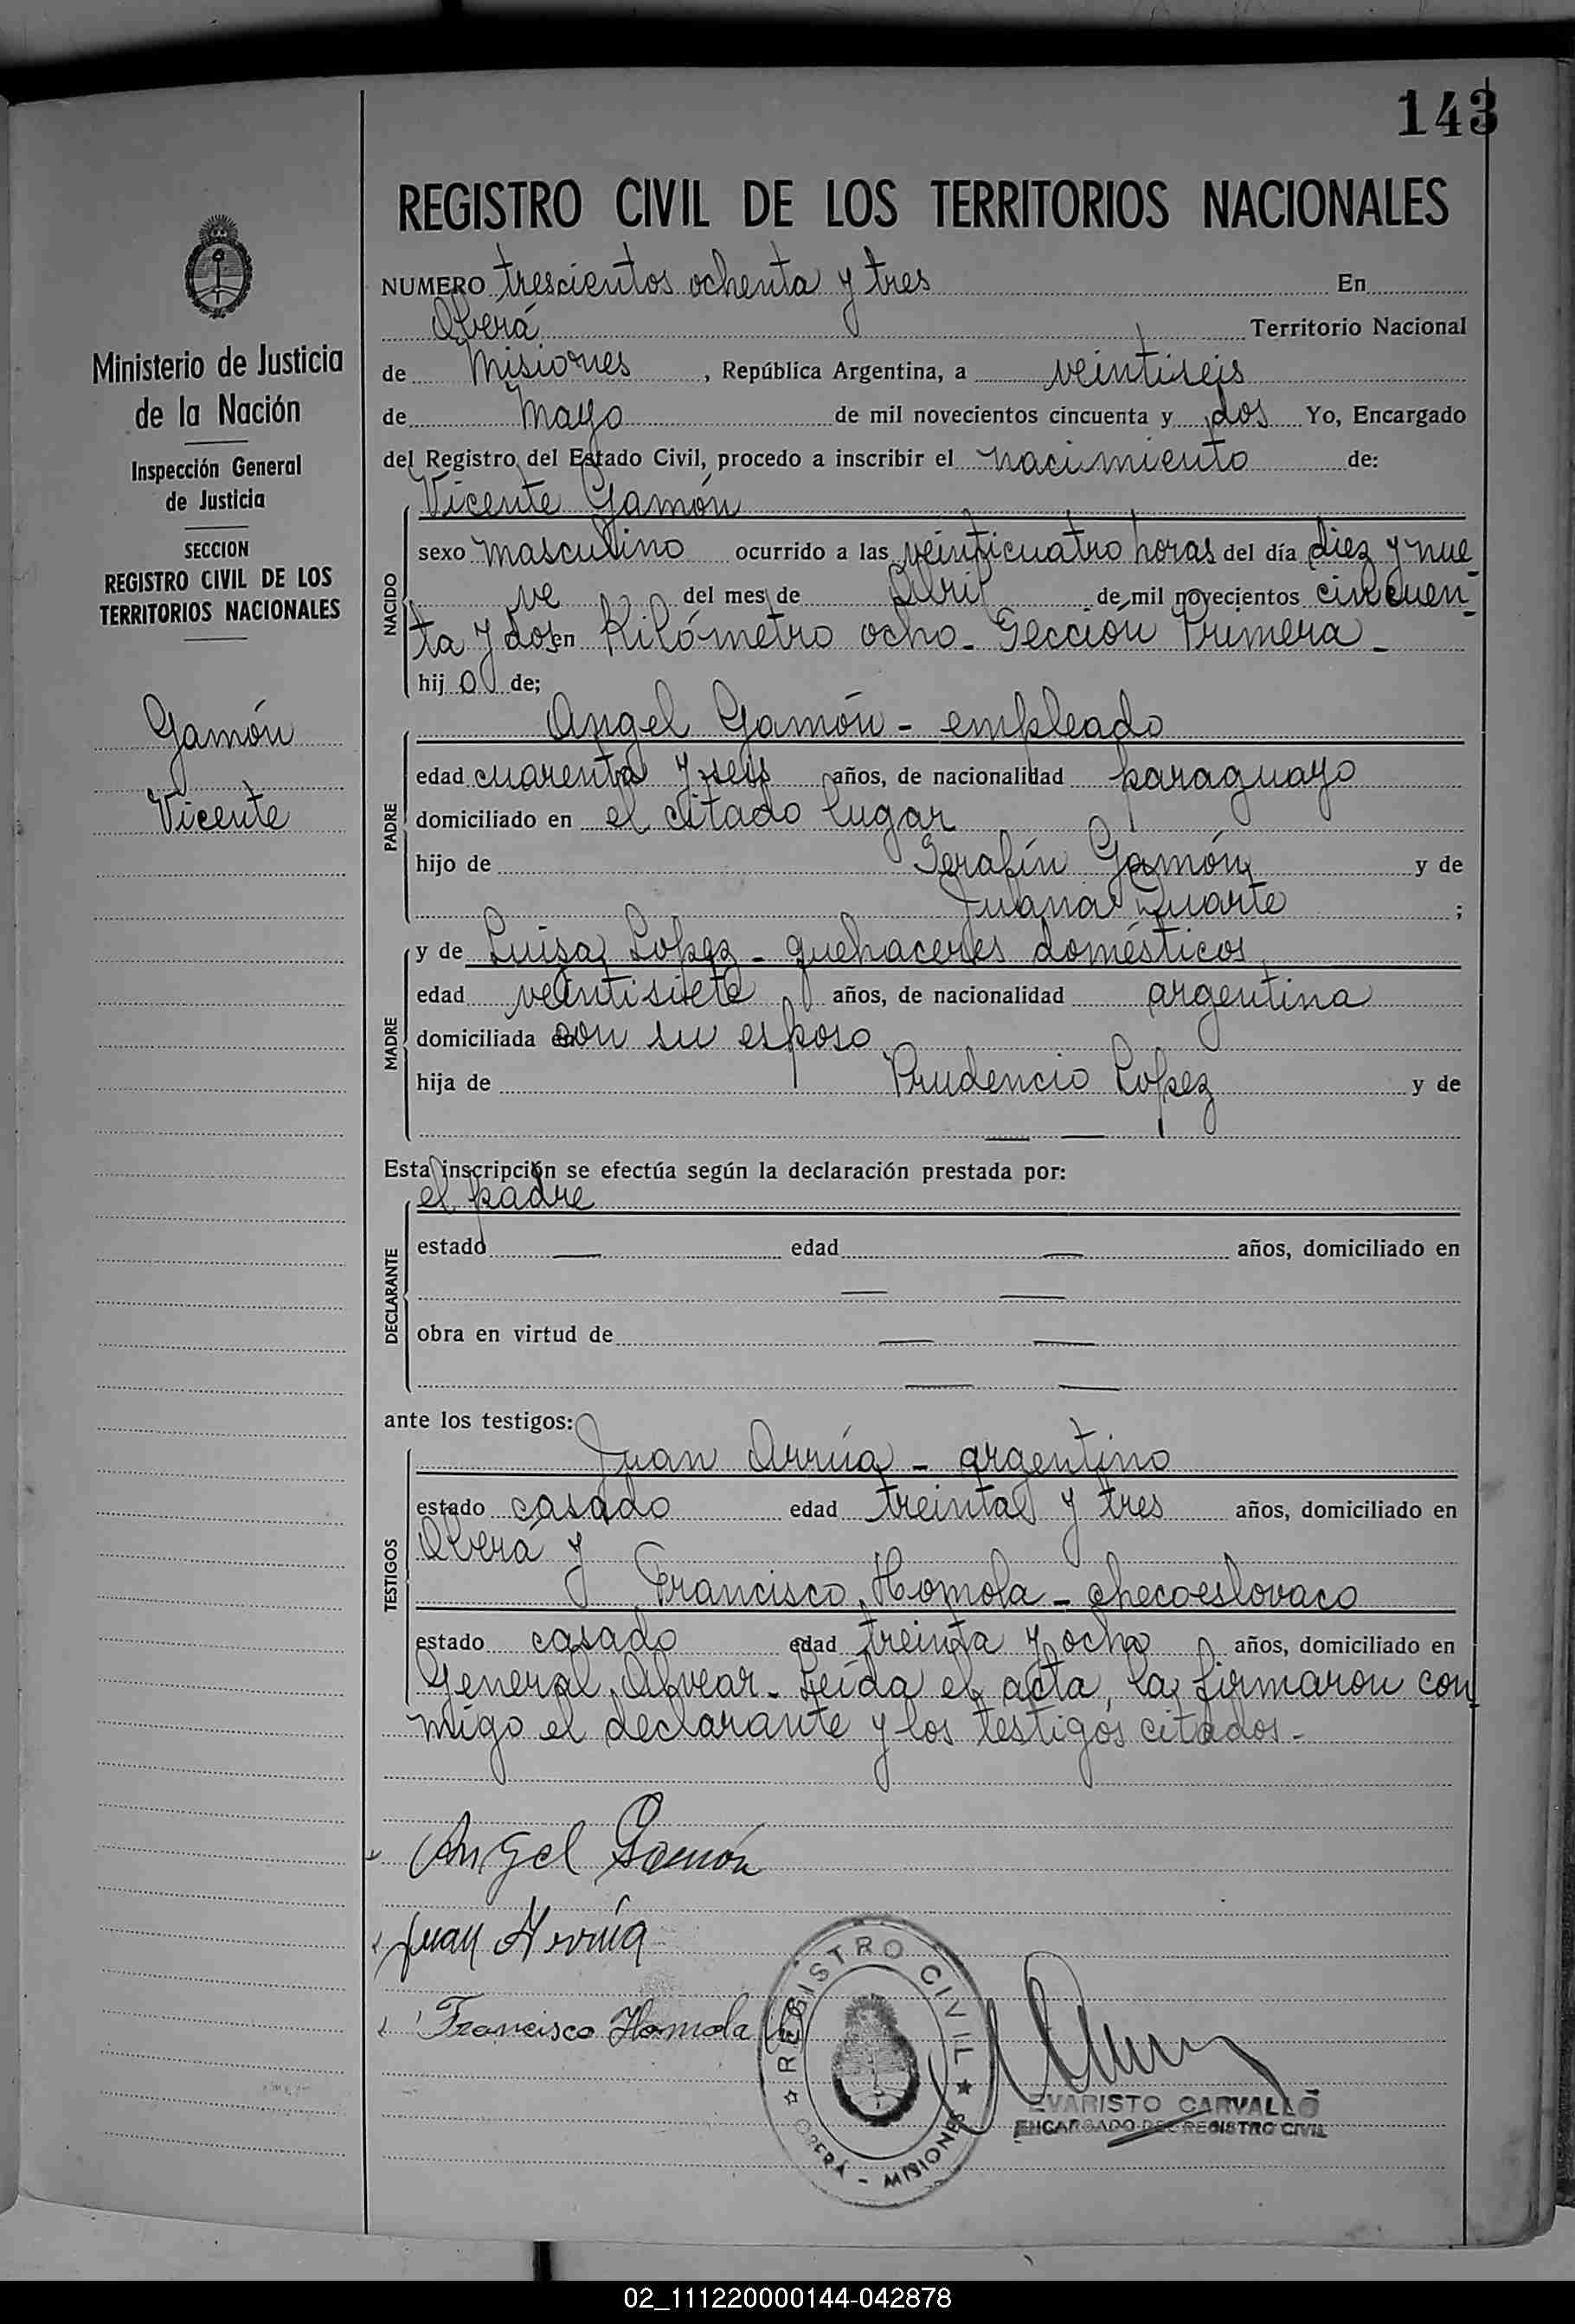 143
REGISTRO CIVIL DE LOS TERRITORIOS NACIONALES
Ministerio de Justicia
de la Nación
Inspección General
de Justicia
SECCION
REGISTRO CIVIL DE LOS
TERRITORIOS NACIONALES
Gamón
Vicente
NUMERO trescientos ochenta y tres En
Oberá Territorio Nacional
de Misiones, República Argentina, a veintiseis
de Mayo de mil novecientos cincuenta y dos Yo, Encargado
del Registro del Estado Civil, procedo a inscribir el nacimiento de:
Vicente Gamón
NACIDO
sexo masculino ocurrido a las veinticuatro horas del día diez y nue-
ve del mes de Abril de mil novecientos cincuen-
ta y dos en Kilómetro ocho - Sección Primera -
hijo de;
Angel Gamón - empleado
PADRE
edad cuarenta y seis años, de nacionalidad paraguayo
domiciliado en el citado lugar
hijo de Serafín Gamón y de
Juana Duarte ;
y de Luisa Lopez - quehaceres domésticos
MADRE
edad veintisiete años, de nacionalidad argentina
domiciliada con su esposo
hija de Prudencio Lopez y de
— —
Esta inscripción se efectúa según la declaración prestada por:
el padre
DECLARANTE
estado — edad — años, domiciliado en
— —
obra en virtud de — —
— —
ante los testigos:
Juan Arrúa - argentino
TESTIGOS
estado casado edad treinta y tres años, domiciliado en
Oberá y
Francisco Homola - checoeslovaco
estado casado edad treinta y ocho años, domiciliado en
General Alvear. Leída el acta, la firmaron con-
migo el declarante y los testigos citados.-
Angel Gamón
Juan Arrúa
Francisco Homola
REGISTRO CIVIL
OBERÁ - MISIONES
EVARISTO CARVALLO
ENCARGADO DEL REGISTRO CIVIL
02_111220000144-042878